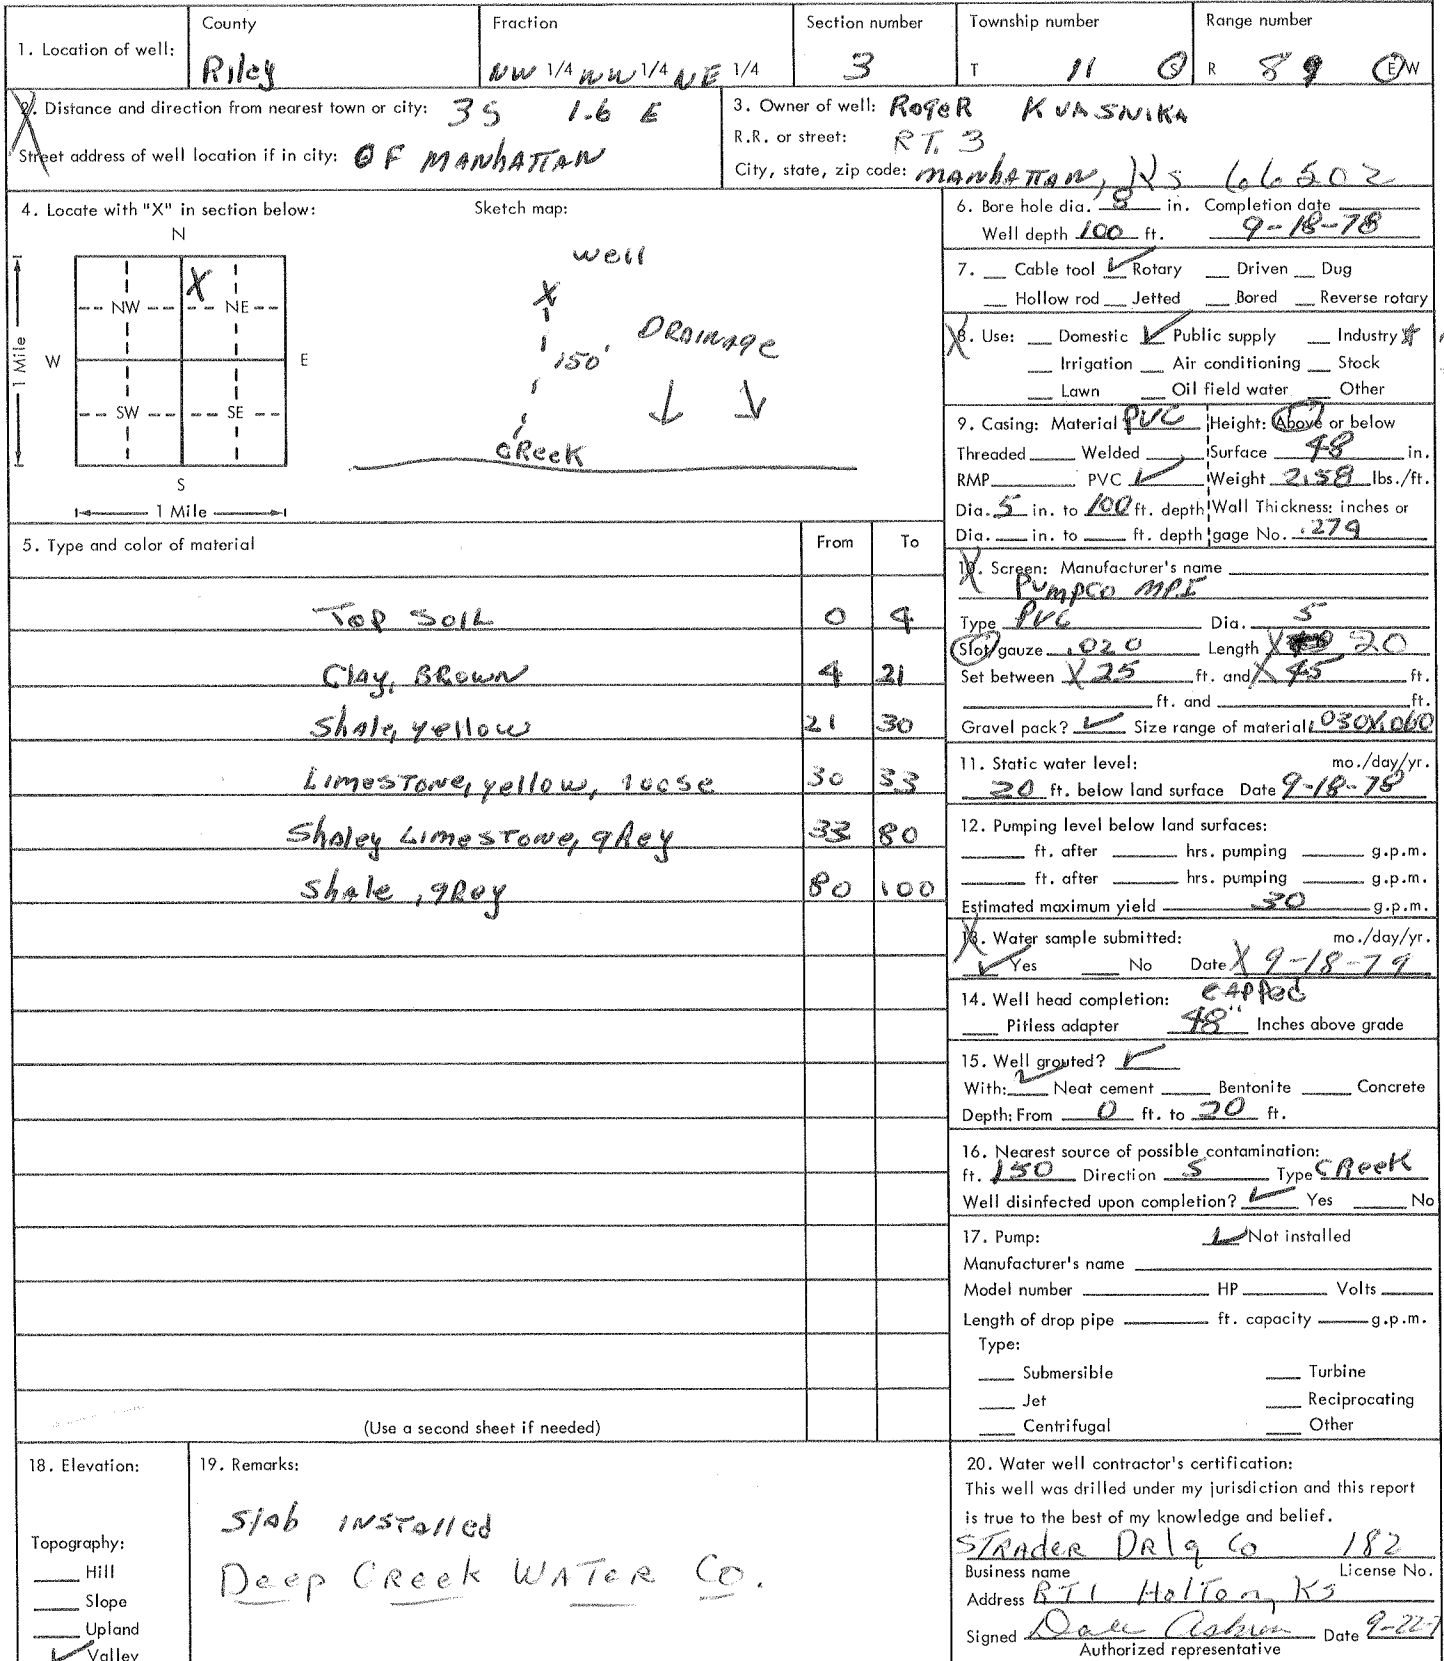 1. Location of well: County Riley Fraction NW 1/4 NW 1/4 NE 1/4 Section number 3 Township number T 11 S Range number R 8 9 E W
2. Distance and direction from nearest town or city: 3S 1.6 E
Street address of well location if in city: OF MANHATTAN
3. Owner of well: Roger KVASNIKA
R.R. or street: RT. 3
City, state, zip code: MANHATTAN, Ks 66502
4. Locate with "X" in section below: Sketch map:
N
1 Mile
NW X NE
W E
SW SE
S
1 Mile
well
X
150'
DRAINAGE
CREEK
5. Type and color of material From To
Top Soil 0 4
Clay, BROWN 4 21
Shale, yellow 21 30
LIMESTONE, yellow, loose 30 33
Shaley LIMESTONE, gRey 33 80
Shale, gRey 80 100
(Use a second sheet if needed)
6. Bore hole dia. 8 in. Completion date
Well depth 100 ft. 9-18-78
7. Cable tool ✓ Rotary Driven Dug
Hollow rod Jetted Bored Reverse rotary
8. Use: Domestic ✓ Public supply Industry
Irrigation Air conditioning Stock
Lawn Oil field water Other
9. Casing: Material PVC Height: Above or below
Threaded Welded Surface 48 in.
RMP PVC ✓ Weight 2.58 lbs./ft.
Dia. 5 in. to 100 ft. depth Wall Thickness: inches or
Dia. in. to ft. depth gage No. .279
10. Screen: Manufacturer's name
PUMPCO MPI
Type PVC Dia. 5
Slot/gauze .020 Length X 20
Set between X 25 ft. and X 45 ft.
ft. and ft.
Gravel pack? ✓ Size range of material: 030X.060
11. Static water level: mo./day/yr.
20 ft. below land surface Date 9-18-78
12. Pumping level below land surfaces:
ft. after hrs. pumping g.p.m.
ft. after hrs. pumping g.p.m.
Estimated maximum yield 30 g.p.m.
13. Water sample submitted: mo./day/yr.
✓ Yes No Date X 9-18-79
14. Well head completion: CAPPED
Pitless adapter 48" Inches above grade
15. Well grouted? ✓
With: ✓ Neat cement Bentonite Concrete
Depth: From 0 ft. to 20 ft.
16. Nearest source of possible contamination:
ft. 150 Direction S Type CReeK
Well disinfected upon completion? ✓ Yes No
17. Pump: ✓ Not installed
Manufacturer's name
Model number HP Volts
Length of drop pipe ft. capacity g.p.m.
Type:
Submersible Turbine
Jet Reciprocating
Centrifugal Other
18. Elevation:
Topography:
Hill
Slope
Upland
✓ Valley
19. Remarks:
Slab INSTalled
Deep CReek WATeR Co.
20. Water well contractor's certification:
This well was drilled under my jurisdiction and this report
is true to the best of my knowledge and belief.
STRADER DRlg Co 182
Business name License No.
Address RT1 Holton, KS
Signed Dale Date 9-22-7
Authorized representative